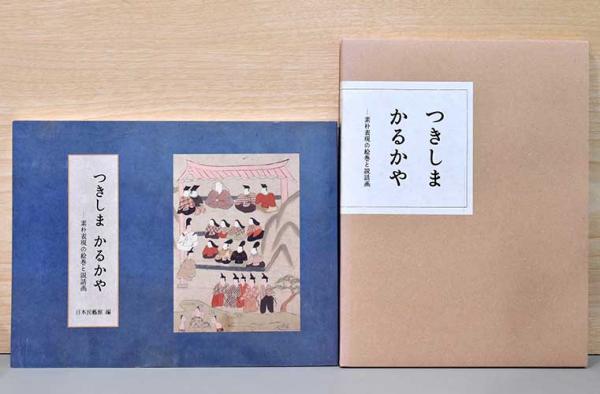 つきしま かるかや
素朴表現の絵巻と説話画
日本民藝館 編
つきしま
かるかや
―素朴表現の絵巻と説話画